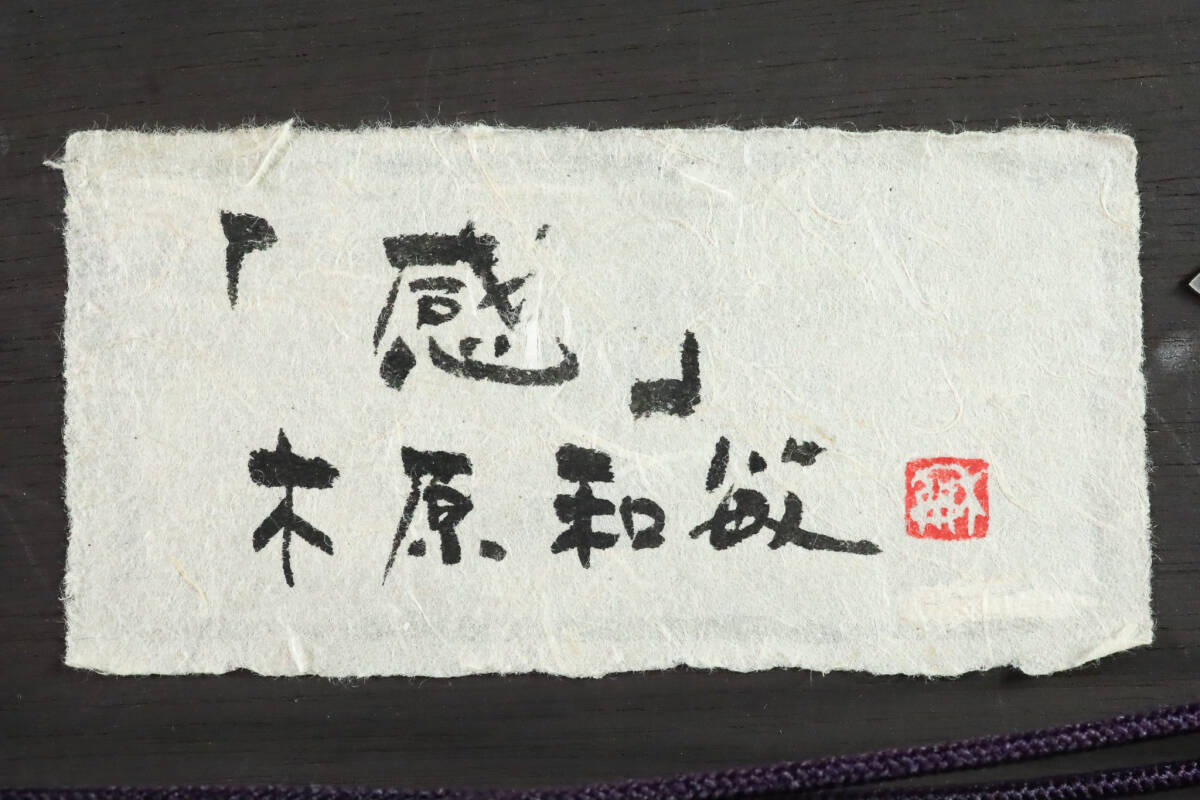 「感」
木原和敏